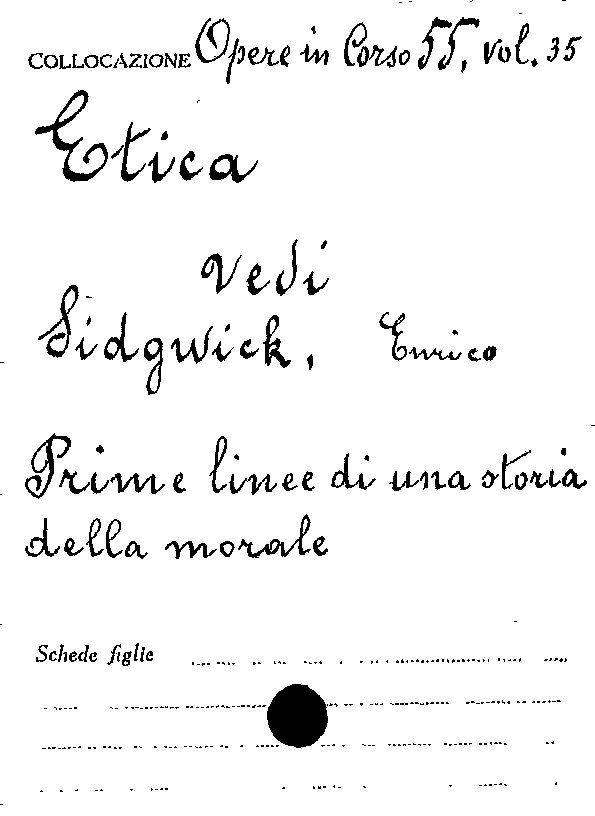 COLLOCAZIONE Opere in Corso 55, vol. 35
Etica
Vedi
Sidgwick, Enrico
Prime linee di una storia
della morale
Schede figlie